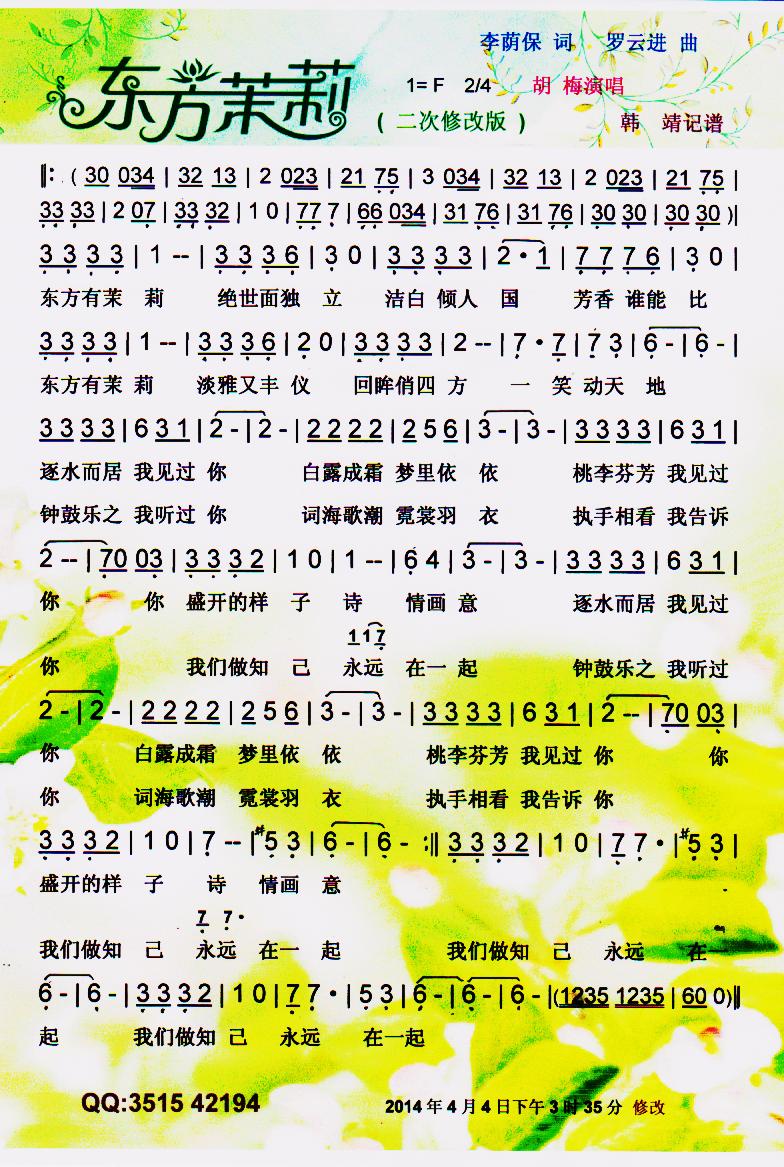 东方茉莉
李荫保 词 罗云进 曲
1= F 2/4 胡 梅演唱
( 二次修改版 ) 韩 靖记谱
‖: ( 30 034 | 32 13 | 2 023 | 21 75 | 3 034 | 32 13 | 2 023 | 21 75 |
33 33 | 2 07 | 33 32 | 1 0 | 77 7 | 66 034 | 31 76 | 31 76 | 30 30 | 30 30 )‖
3 3 3 3 | 1 -- | 3 3 3 6 | 3 0 | 3 3 3 3 | 2 · 1 | 7 7 7 6 | 3 0 |
东方有茉 莉 绝世面独 立 洁白 倾人 国 芳香 谁能 比
3 3 3 3 | 1 -- | 3 3 3 6 | 2 0 | 3 3 3 3 | 2 -- | 7 · 7 | 7 3 | 6 - | 6 - |
东方有茉 莉 淡雅又丰 仪 回眸俏四 方 一 笑 动天 地
3 3 3 3 | 6 3 1 | 2 - | 2 - | 2 2 2 2 | 2 5 6 | 3 - | 3 - | 3 3 3 3 | 6 3 1 |
逐水而居 我见过 你 白露成霜 梦里依 依 桃李芬芳 我见过
钟鼓乐之 我听过 你 词海歌潮 霓裳羽 衣 执手相看 我告诉
2 -- | 70 03 | 3 3 3 2 | 1 0 | 1 -- | 6 4 | 3 - | 3 - | 3 3 3 3 | 6 3 1 |
你 你 盛开的样 子 诗 情画 意 逐水而居 我见过
1 1 7
你 我们做知 己 永远 在一 起 钟鼓乐之 我听过
2 - | 2 - | 2 2 2 2 | 2 5 6 | 3 - | 3 - | 3 3 3 3 | 6 3 1 | 2 -- | 70 03 |
你 白露成霜 梦里依 依 桃李芬芳 我见过 你 你
你 词海歌潮 霓裳羽 衣 执手相看 我告诉 你
3 3 3 2 | 1 0 | 7 -- | #5 3 | 6 - | 6 - :‖ 3 3 3 2 | 1 0 | 7 7 · | #5 3 |
盛开的样 子 诗 情画 意
7 7 ·
我们做知 己 永远 在一 起 我们做知 己 永远 在一
6 - | 6 - | 3 3 3 2 | 1 0 | 7 7 · | 5 3 | 6 - | 6 - | 6 - ‖ (1235 1235 | 60 0)‖
起 我们做知 己 永远 在一起
QQ:3515 42194
2014 年 4 月 4 日下午 3 时 35 分 修改